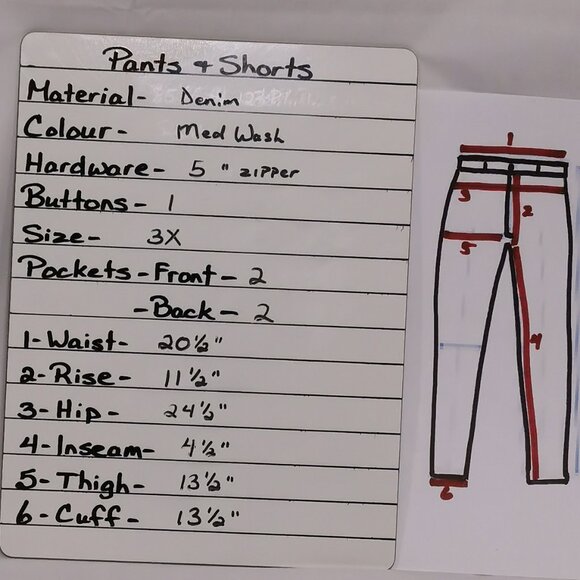 Pants & Shorts
Material- Denim
Colour- Med Wash
Hardware- 5 " zipper
Buttons- 1
Size- 3X
Pockets-Front- 2
-Back- 2
1-Waist- 20½"
2-Rise- 11½"
3-Hip- 24½"
4-Inseam- 4½"
5-Thigh- 13½"
6-Cuff- 13½"
1
3
2
5
4
6